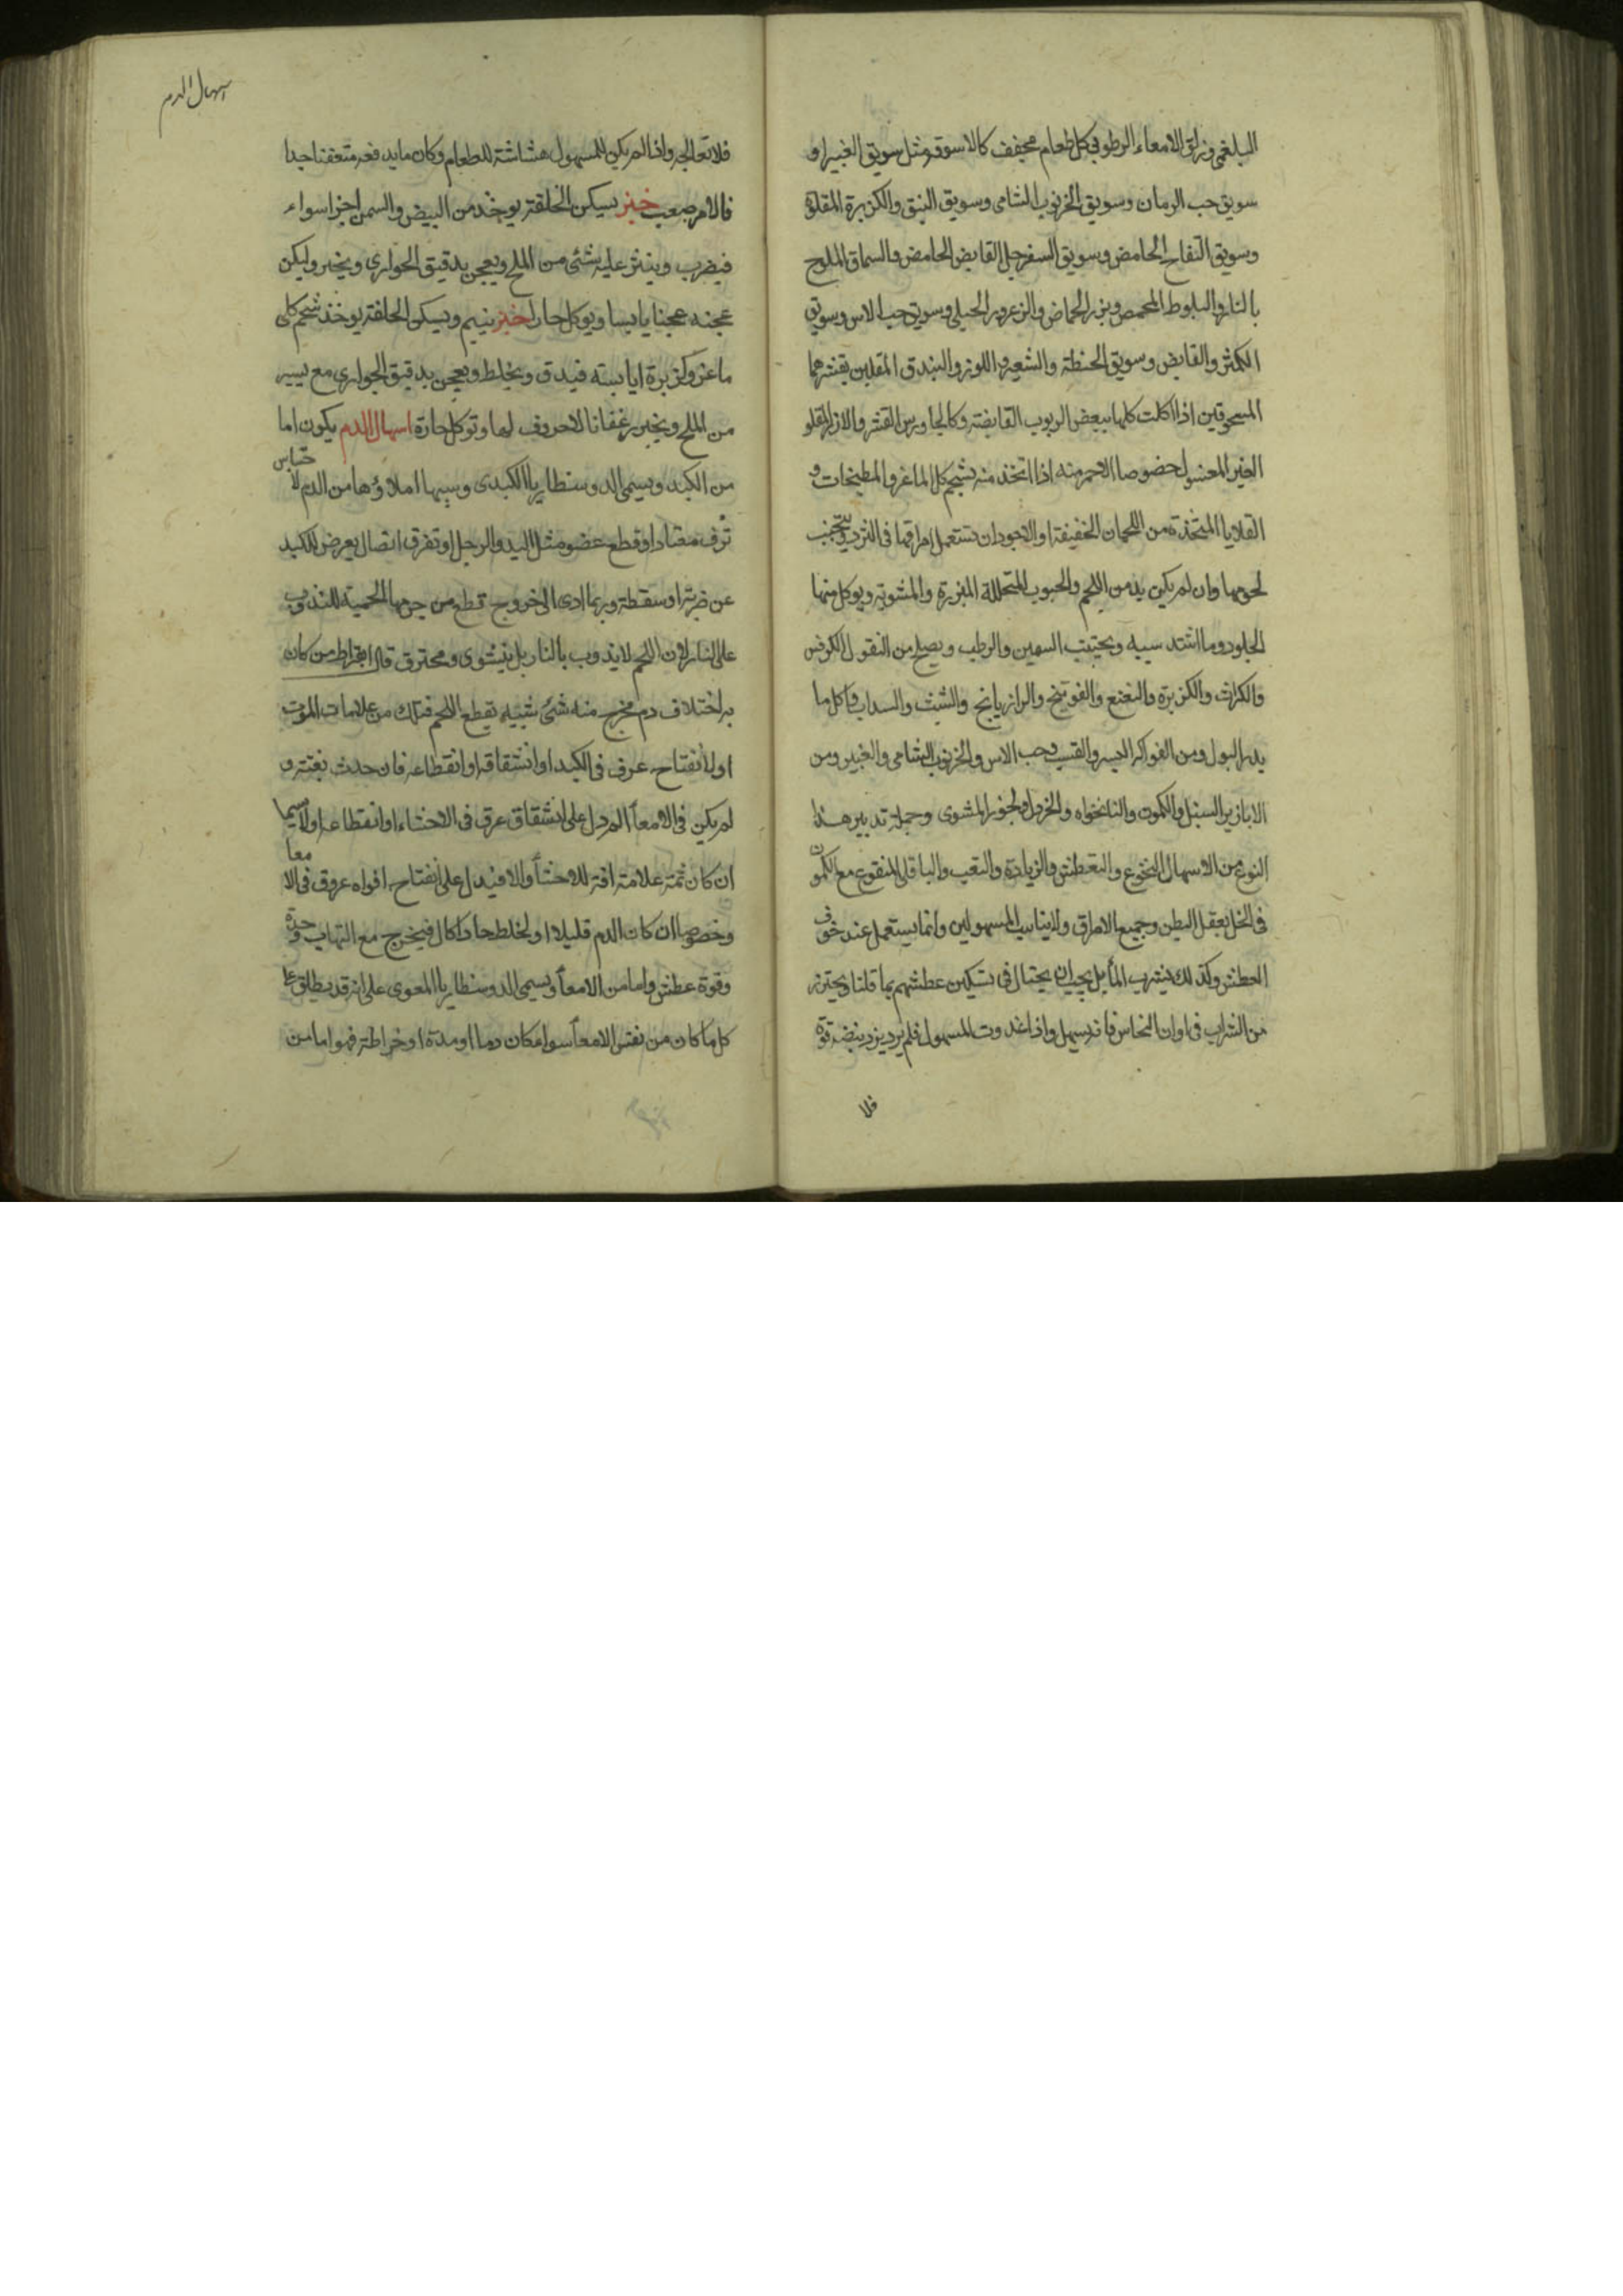 البلغمى وزلق الامعاء الرطوبى كل طعام مجفف كالاسوقة مثل سويق الغبيرا و
سويق حب الرمان وسويق الخرنوب الشامى وسويق النبق والكزبرة المقلوة
وسويق التفاح الحامض وسويق السفرجل القابض الحامض والسماق الملوح
بالنار والبلوط المحمص وبزر الحماض والزعرور الجبلى وسويق حب الاس وسويق
الكمثرى القابض وسويق الحنطة والشعير واللوز والبندق المقلين بقشرهما
المسحوقين اذا اكلت كلها ببعض الربوب القابضة وكالجاورس المقشر والارز المقلو
الغير المغسول خصوصا الاحمر منه اذا اتخذ منه بشحم كلى الماعز والمطبخات و
القلايا المتخذة من اللحمان الخفيفة والاجود ان تستعمل امراقها فى الثريد ويتجنب
لحومها وان لم يكن بد من اللحم والحبوب المتحللة المبزرة والمشوية ويوكل منها
الجلود وما اشتد سيبه ويجتنب السمين والرطب ويصلح من البقول الكرفس
والكراث والكزبرة والنعنع والفوتنج والرازيانج والشبث والسداب واكل ما
يدر البول ومن الفواكه البسر والقسب وحب الاس والخرنوب الشامى والغبير ومن
الابازير السنبل والكمون والنانخواه والخردل والجوز المشوى وجملة تدبير هذا
النوع من الاسهال الجوع والتعطش والرياضة والتعب والباقلى المنقوع مع الكمون
فى الخل يعقل البطن وجميع الامراق ولا يناسب المسهولين وانما يستعمل عند خوف
العطش وكذلك يشرب الماء بل يجب ان يحتال فى تسكين عطشهم بما قلنا ويحترز
من الشراب فى اوان النحاس فانه يسهل واذا غدوت المسهول فلم يزد يزد نبضه قوة
فلا
اسهال الدم
فلا تعالجه واذا لم يكن للمسهول هشاشة للطعام وكان ما يدفعه متعفنا جدا
فالامر صعب خبز يسكن الخلفة يوخذ من البيض والسمن اجزا سواء
فيضرب وينثر عليه شئ من الملح ويعجن بدقيق الحوارى ويخبز وليكن
عجنه عجنا يابسا ويوكل حارا خبز ينيم ويسكن الخلفة يوخذ شحم كلى
ماعز وكزبرة يابسة فيدق ويخلط ويعجن بدقيق الحوارى مع يسير
من الملح ويخبز رغفانا لا حروف لها وتوكل حارة اسهال الدم يكون اما
من الكبد ويسمى الدوسنطاريا الكبدى وسببها املاؤها من الدم لاحتباس
نزف معتاد او قطع عضو مثل اليد والرجل او تفرق اتصال يعرض للكبد
عن ضربة او سقطة وربما ادى الى خروج قطع من جرمها اللحمية لا تذوب
على النار لان اللحم لا يذوب بالنار بل ينشوى ومحترق قال ابقراط من كان
به اختلاف دم فخرج منه شئ شبيه بقطع اللحم فتلك من علامات الموت
اولا نفتاح عرف فى الكبد او انشقاقه او انقطاعه فان حدث بغتة و
لم يكن فى الامعاء الم دل على انشقاق عرق فى الاحشاء او انقطاعه اولا سيما
ان كان ثمة علامة افة للاحشاء والا فيدل على انفتاح افواه عروق فى الامعا
وخصوصا ان كان الدم قليلا او لخلط حاد اكال فيخرج مع التهاب وحدة
وقوة عطش واما من الامعاء ويسمى الدوسنطاريا المعوى على انه قد يطلق على
كل ما كان من نفس الامعاء سواء كان دما او مدة او خراطة فهو اما من